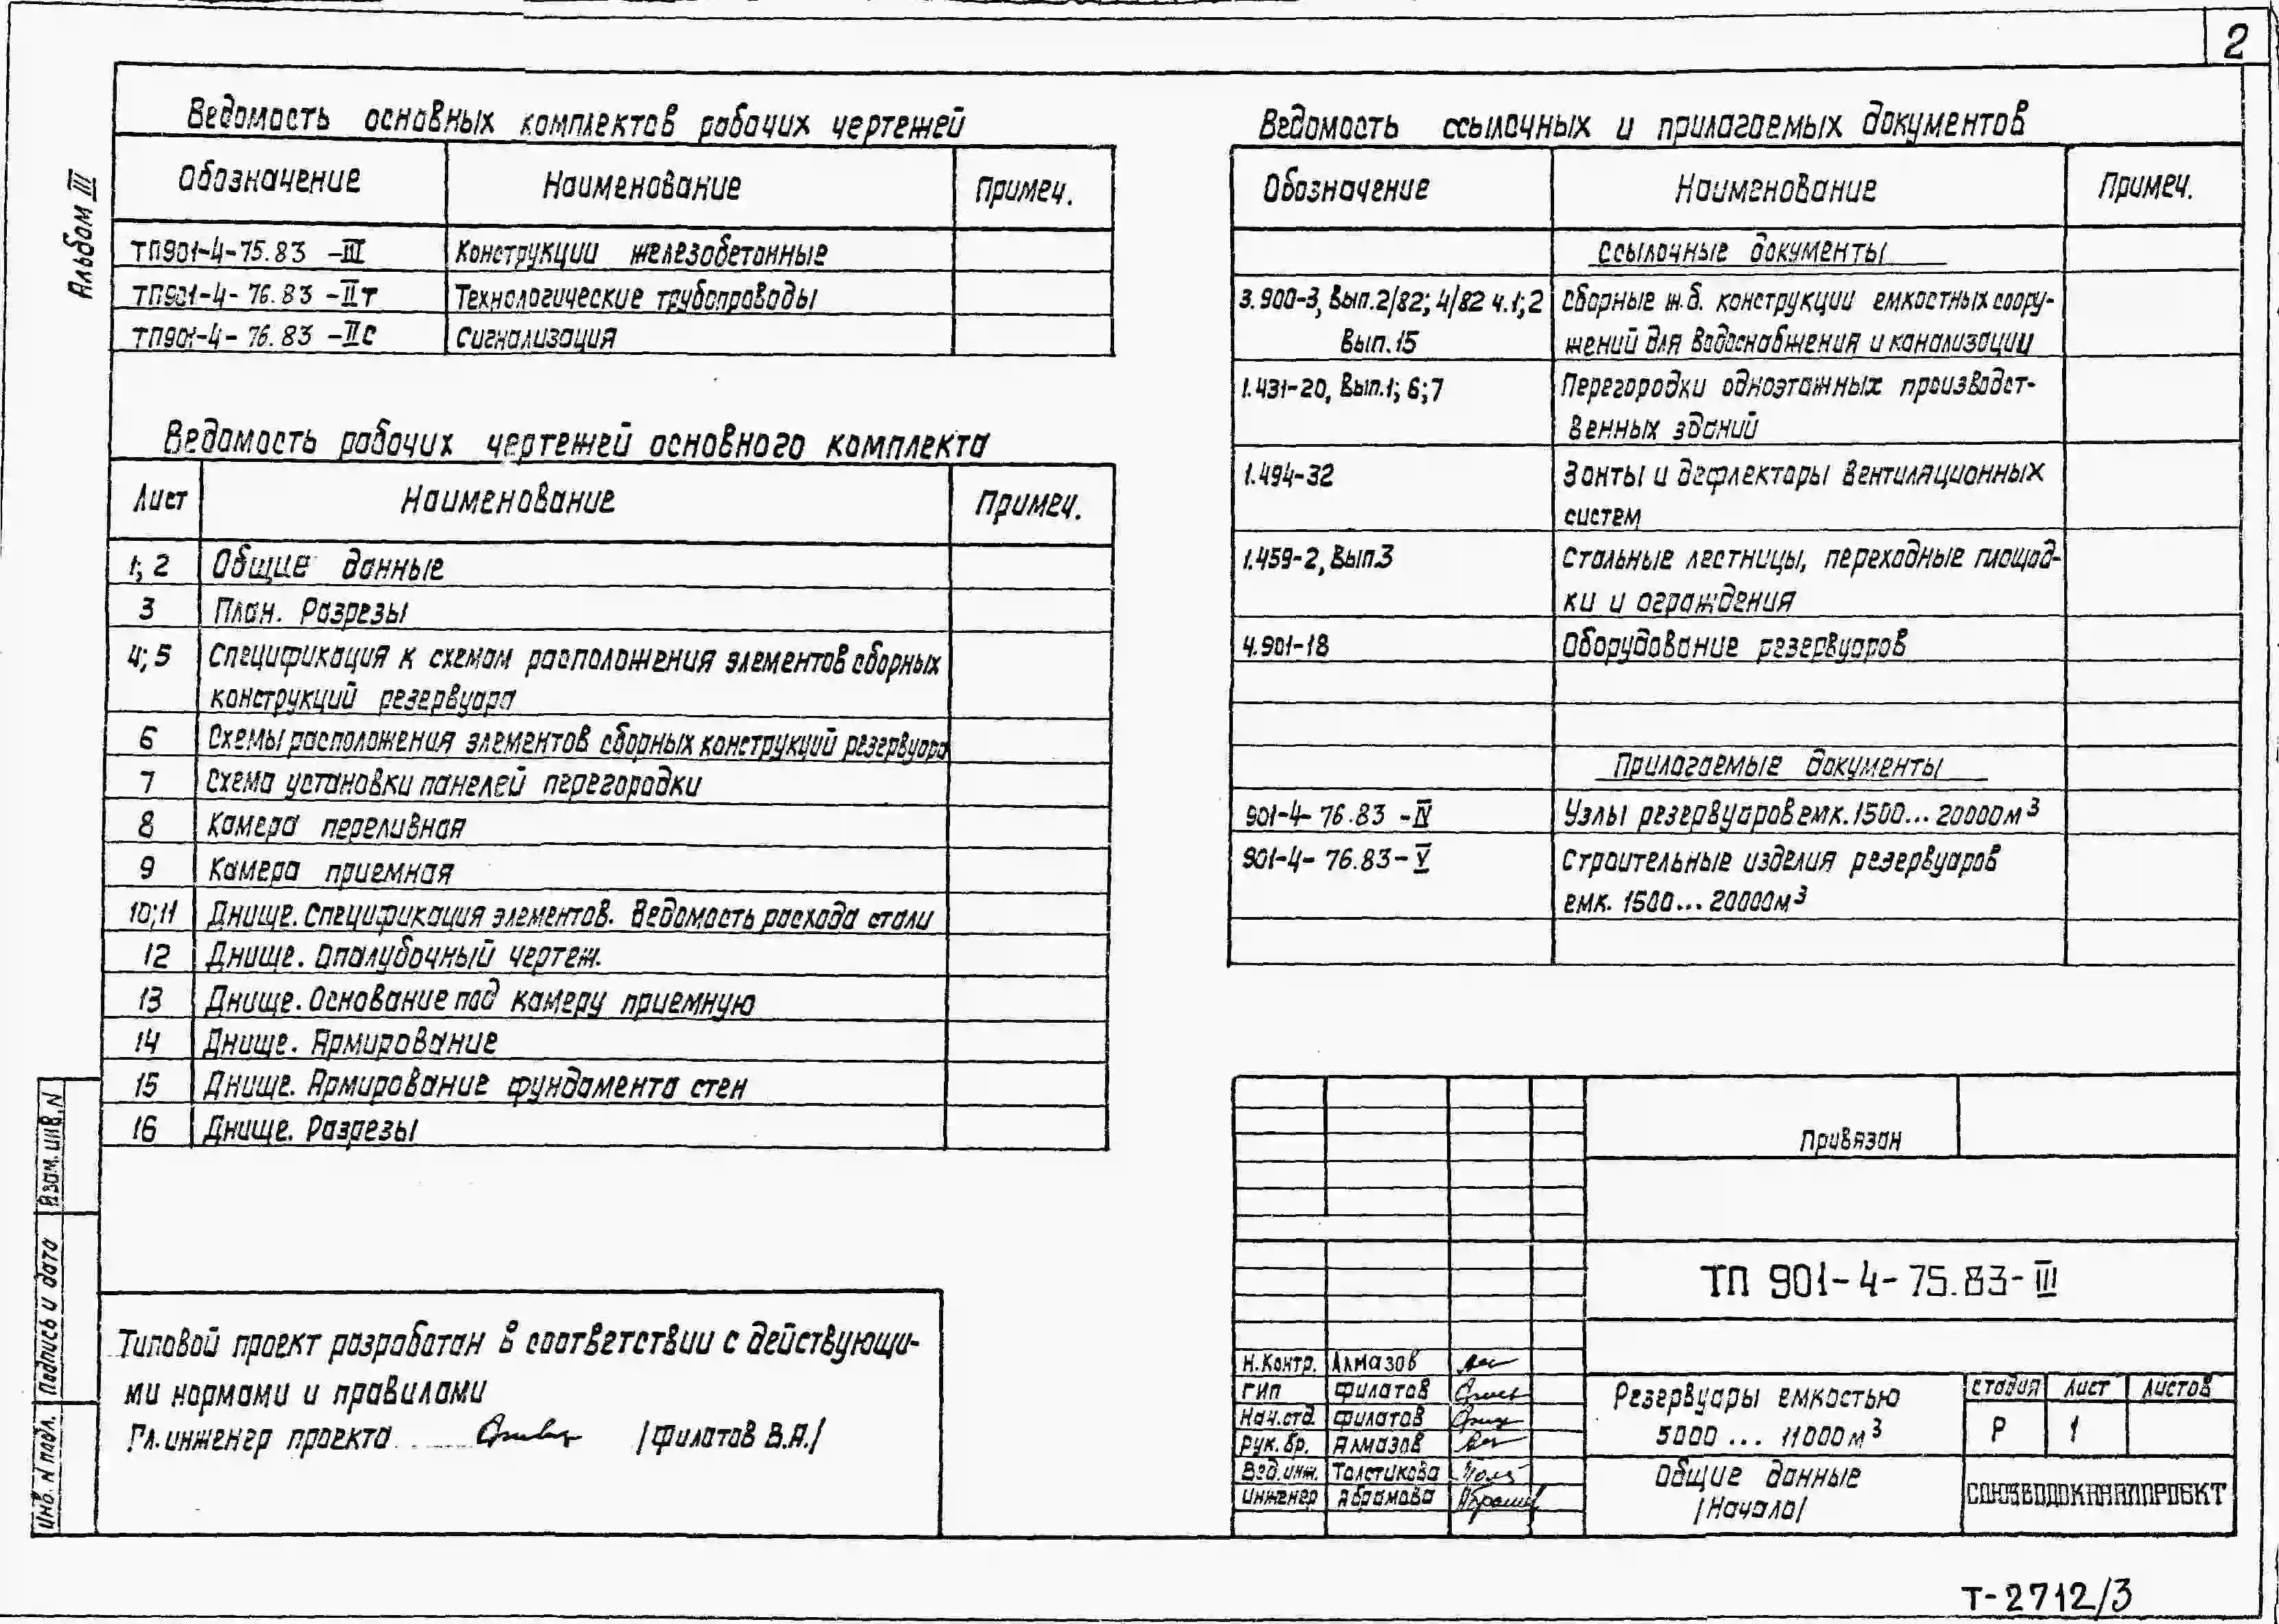 2
Альбом III
Ведомость основных комплектов рабочих чертежей
Обозначение Наименование Примеч.
ТП901-4-75.83 -III Конструкции железобетонные
ТП901-4-76.83 -IIТ Технологические трубопроводы
ТП901-4-76.83 -IIС Сигнализация
Ведомость рабочих чертежей основного комплекта
Лист Наименование Примеч.
1; 2 Общие данные
3 План. Разрезы
4; 5 Спецификация к схемам расположения элементов сборных
конструкций резервуара
6 Схемы расположения элементов сборных конструкций резервуара
7 Схема установки панелей перегородки
8 Камера переливная
9 Камера приемная
10;11 Днище. Спецификация элементов. Ведомость расхода стали
12 Днище. Опалубочный чертеж.
13 Днище. Основание под камеру приемную
14 Днище. Армирование
15 Днище. Армирование фундамента стен
16 Днище. Разрезы
Типовой проект разработан в соответствии с действующи-
ми нормами и правилами
Гл. инженер проекта /Филатов В.А./
Взам. инв. N
Подпись и дата
Инв. N подл.
Ведомость ссылочных и прилагаемых документов
Обозначение Наименование Примеч.
Ссылочные документы
3.900-3, Вып.2/82; 4/82 ч.1;2 Сборные ж.б. конструкции емкостных соору-
Вып.15 жений для водоснабжения и канализации
1.431-20, Вып.1; 6;7 Перегородки одноэтажных производст-
венных зданий
1.494-32 Зонты и дефлекторы вентиляционных
систем
1.459-2, Вып.3 Стальные лестницы, переходные площад-
ки и ограждения
4.901-18 Оборудование резервуаров
Прилагаемые документы
901-4-76.83 -IV Узлы резервуаров емк. 1500... 20000м³
901-4-76.83-V Строительные изделия резервуаров
емк. 1500... 20000м³
Привязан
ТП 901-4-75.83-III
Н.Контр. Алмазов
ГИП Филатов
Нач.отд. Филатов
Рук. бр. Алмазов
Вед.инж. Толстикова
Инженер Абрамова
Резервуары емкостью
5000 ... 11000м³
Стадия Лист Листов
Р 1
Общие данные
/Начало/
СОЮЗВОДОКАНАЛПРОЕКТ
Т-2712/3